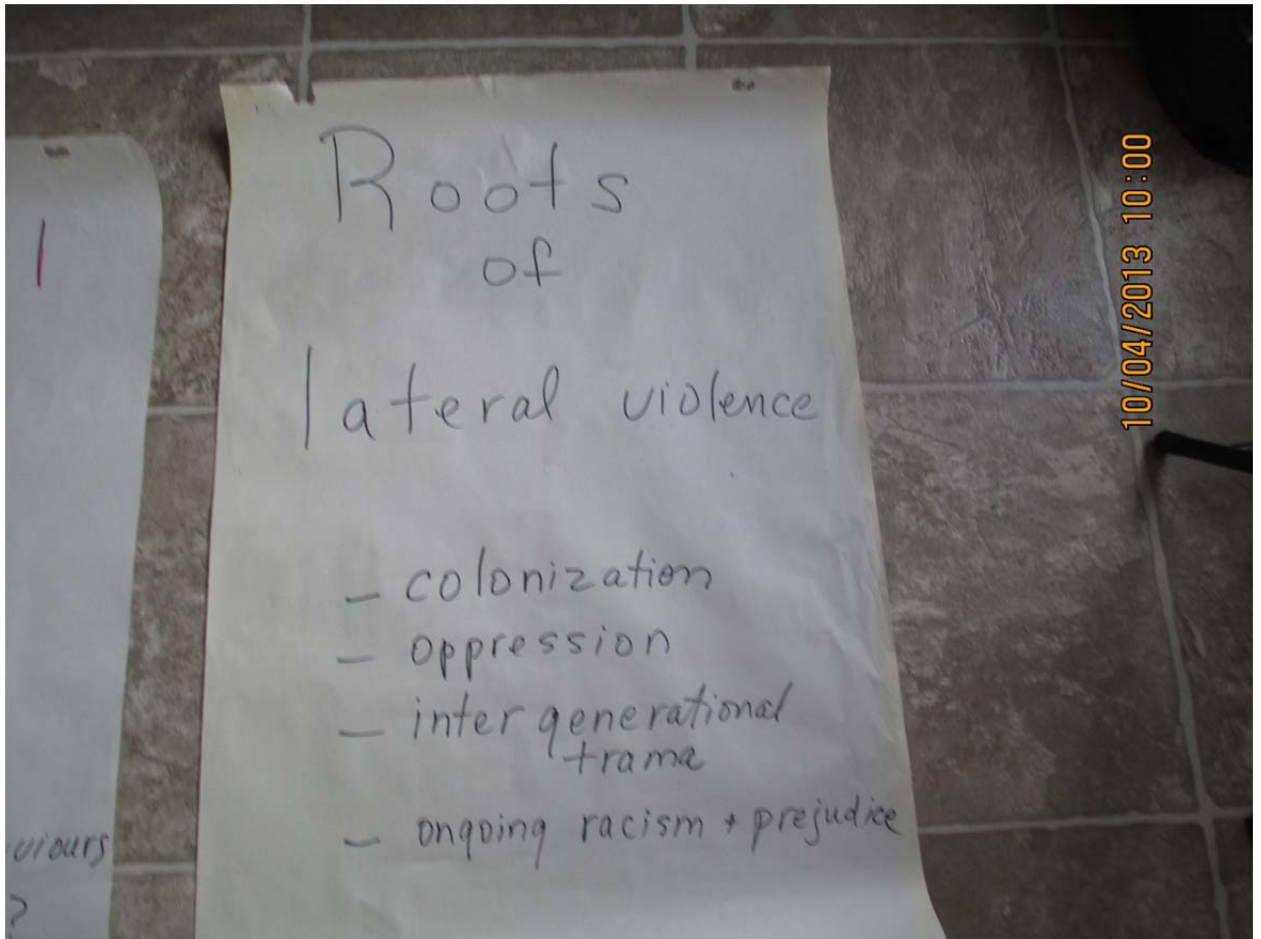 Roots
of
lateral violence
– colonization
– oppression
– intergenerational
trama
– ongoing racism + prejudice
viours
?
10/04/2013 10:00